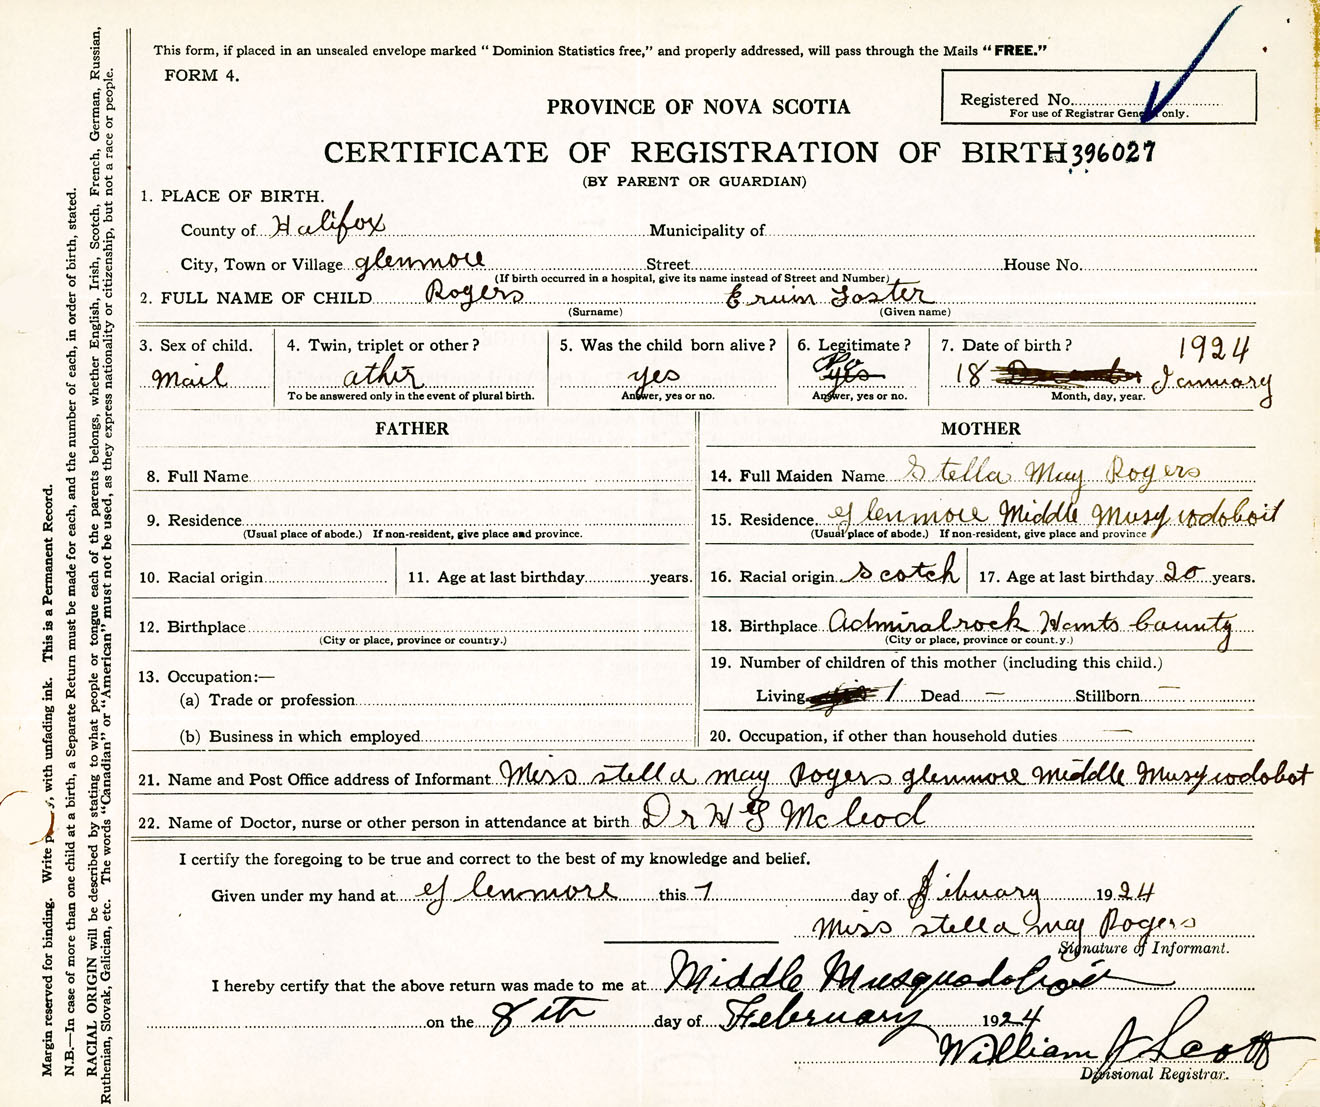 This form, if placed in an unsealed envelope marked "Dominion Statistics free," and properly addressed, will pass through the Mails "FREE."
FORM 4.
Registered No.
For use of Registrar General only.
PROVINCE OF NOVA SCOTIA
CERTIFICATE OF REGISTRATION OF BIRTH 396027
(BY PARENT OR GUARDIAN)
1. PLACE OF BIRTH.
County of Halifox Municipality of
City, Town or Village glenmore Street House No.
(If birth occurred in a hospital, give its name instead of Street and Number)
2. FULL NAME OF CHILD Rogers Ervin Foster
(Surname) (Given name)
3. Sex of child. 4. Twin, triplet or other? 5. Was the child born alive? 6. Legitimate? 7. Date of birth? 1924
Mail athir yes No yes 18 January
To be answered only in the event of plural birth. Answer, yes or no. Answer, yes or no. Month, day, year.
FATHER
8. Full Name
9. Residence
(Usual place of abode.) If non-resident, give place and province.
10. Racial origin 11. Age at last birthday years.
12. Birthplace
(City or place, province or country.)
13. Occupation:—
(a) Trade or profession
(b) Business in which employed
MOTHER
14. Full Maiden Name Stella May Rogers
15. Residence glenmore Middle Musywodoboit
(Usual place of abode.) If non-resident, give place and province
16. Racial origin Scotch 17. Age at last birthday 20 years.
18. Birthplace Admiralrock Hants County
(City or place, province or count.y.)
19. Number of children of this mother (including this child.)
Living 1 Dead — Stillborn —
20. Occupation, if other than household duties —
21. Name and Post Office address of Informant Miss stella may Rogers glenmore Middle Musywodobot
22. Name of Doctor, nurse or other person in attendance at birth Dr H G Mcleod
I certify the foregoing to be true and correct to the best of my knowledge and belief.
Given under my hand at glenmore this 7 day of Fibuary 1924
Miss stella may Rogers
Signature of Informant.
I hereby certify that the above return was made to me at Middle Musquodoboit
on the 8th day of February 1924
William J Scott
Divisional Registrar.
Margin reserved for binding. Write plainly, with unfading ink. This is a Permanent Record.
N.B.—In case of more than one child at a birth, a Separate Return must be made for each, and the number of each, in order of birth, stated.
RACIAL ORIGIN will be described by stating to what people or tongue each of the parents belongs, whether English, Irish, Scotch, French, German, Russian,
Ruthenian, Slovak, Galician, etc. The words "Canadian" or "American" must not be used, as they express nationality or citizenship, but not a race or people.